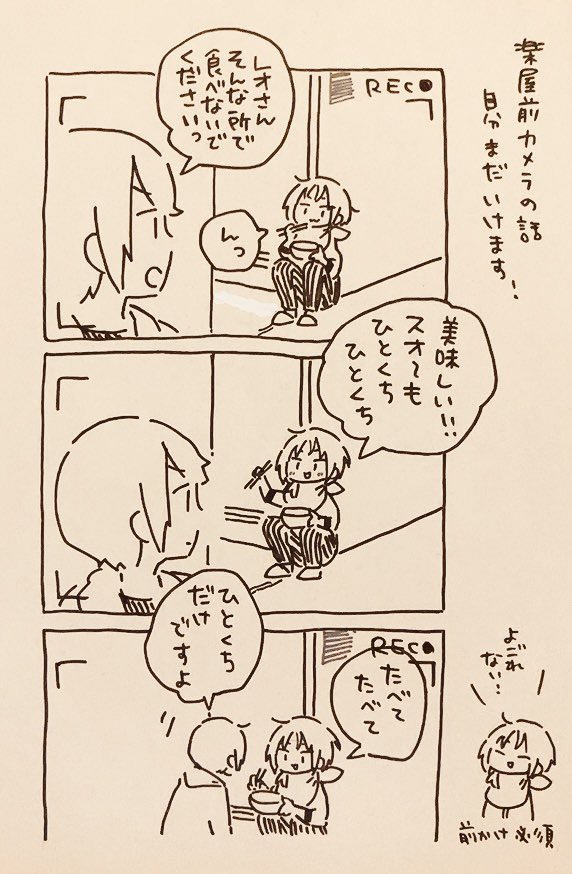 楽屋前カメラの話
自分まだいけます!
REC
レオさん
そんな所で
食べないで
くださいっ
んっ
美味しい!!
スオ〜も
ひとくち
ひとくち
ひとくち
だけ
ですよ
REC
たべて
たべて
よごれ
ない!
前かけ必須